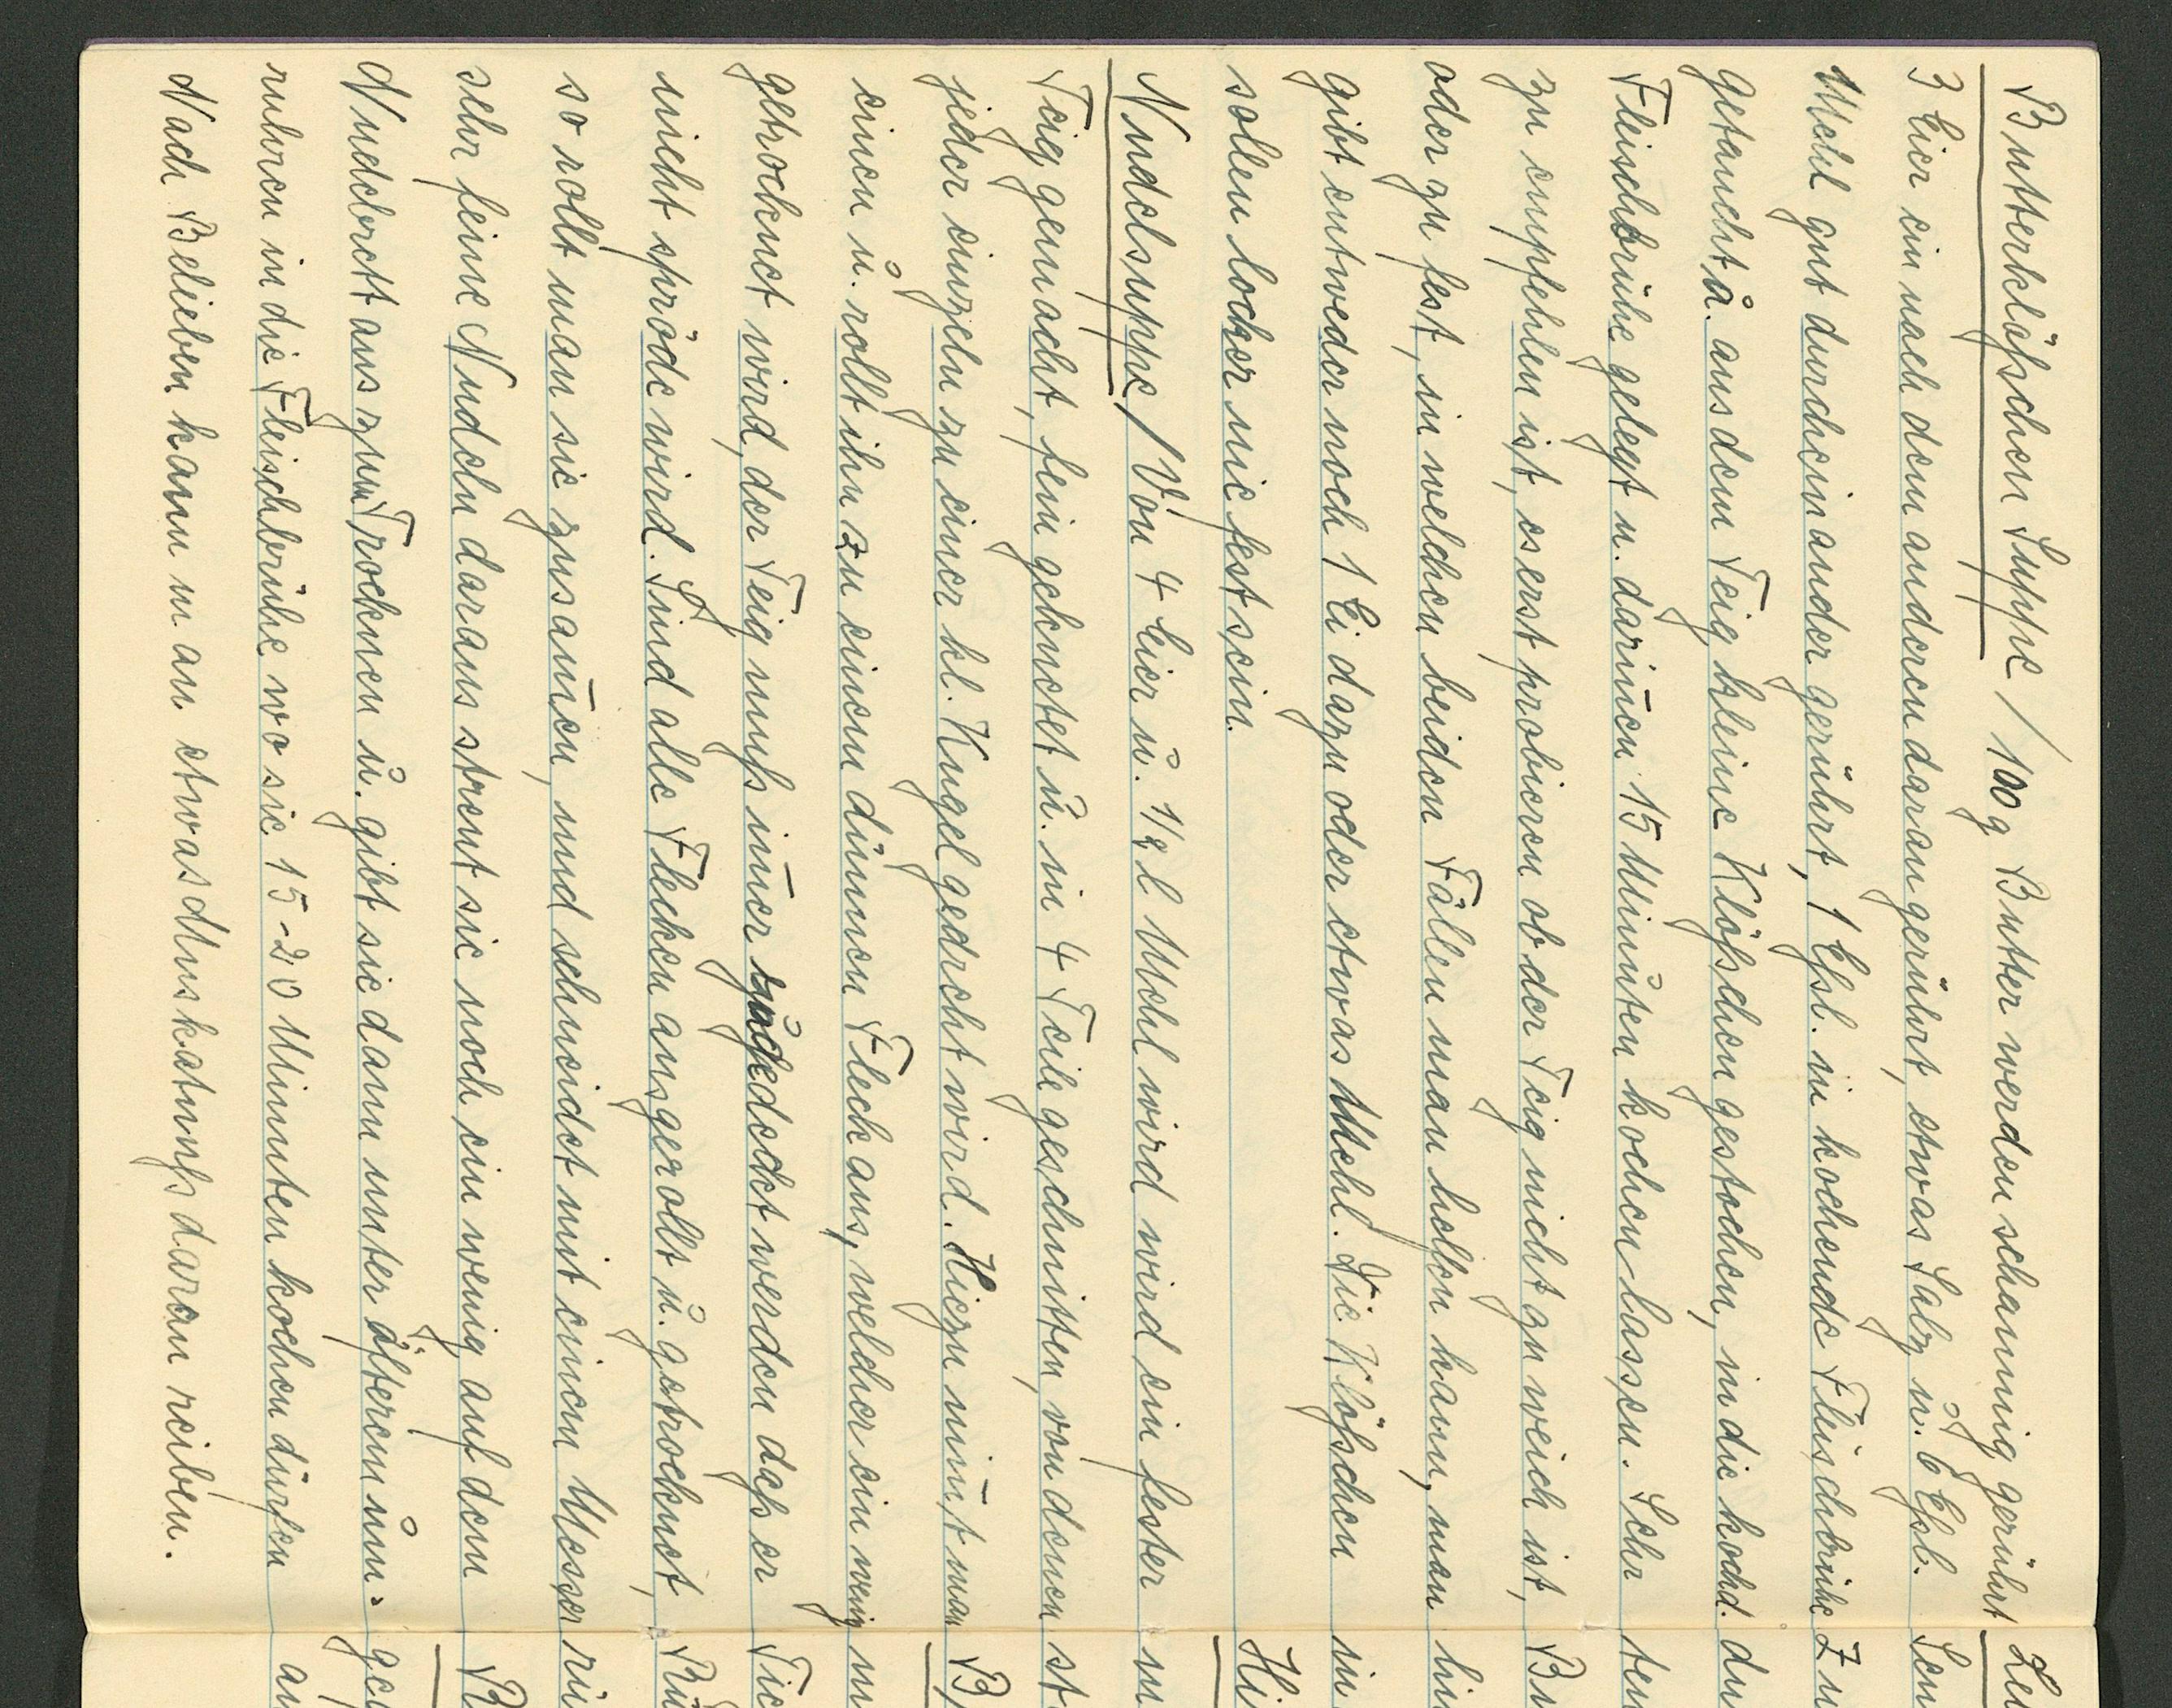 Butterklößchen Suppe / 100 g Butter werden schaumig gerührt
3 Eier ein nach dem anderen daran gerührt, etwas Salz u. 6 Eßl.
Mehl gut durcheinander gerührt, 1 Eßl. in kochende Fleischbrühe
getaucht u. aus dem Teig kleine Klößchen gestochen, in die kochd.
Fleischbrühe gelegt u. darin̄en 15 Minuten kochen lassen. Sehr
zu empfehlen ist, es erst probieren ob der Teig nicht zu weich ist,
oder zu fest, in welchen beiden Fällen man helfen kann, man
gibt entweder noch 1 Ei dazu oder etwas Mehl. Die Klößchen
sollen locker nie fest sein.
Nudelsuppe / Von 4 Eier u. 1/2 l Mehl wird wird ein fester
Teig gemacht, fein geknetet u. in 4 Teile geschnitten, von denen
jeder einzeln zu einer kl. Kugel gedreht wird. Hiezu nim̄t man
einen u. rollt ihn zu einem dünnen Fleck aus, welcher ein wenig
getrocknet wird, der Teig muß im̄er zugedeckt werden daß er
nicht spröde wird. Sind alle Flecken ausgerollt u. getrocknet,
so rollt man sie zusam̄en, und schneidet mit einem Messer
sehr feine Nudeln daraus streut sie noch ein wenig auf dem
Nudelbrett aus zum Trocknen u. gibt sie dann unter öfterem um-
rühren in die Fleischbrühe wo sie 15-20 Minuten kochen dürfen
Nach Belieben kann man etwas Muskatnuß daran reiben.